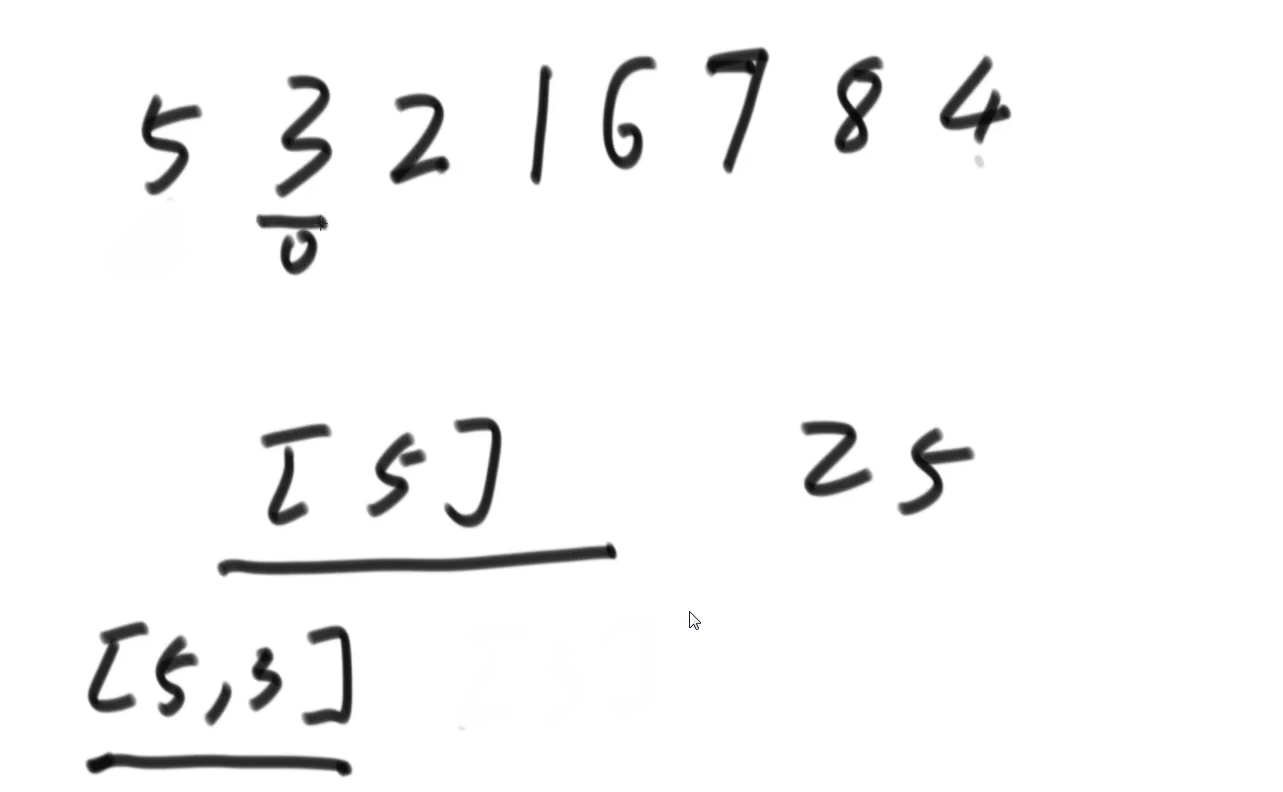 5 3 2 1 6 7 8 4
0
[5] 25
[5,3]